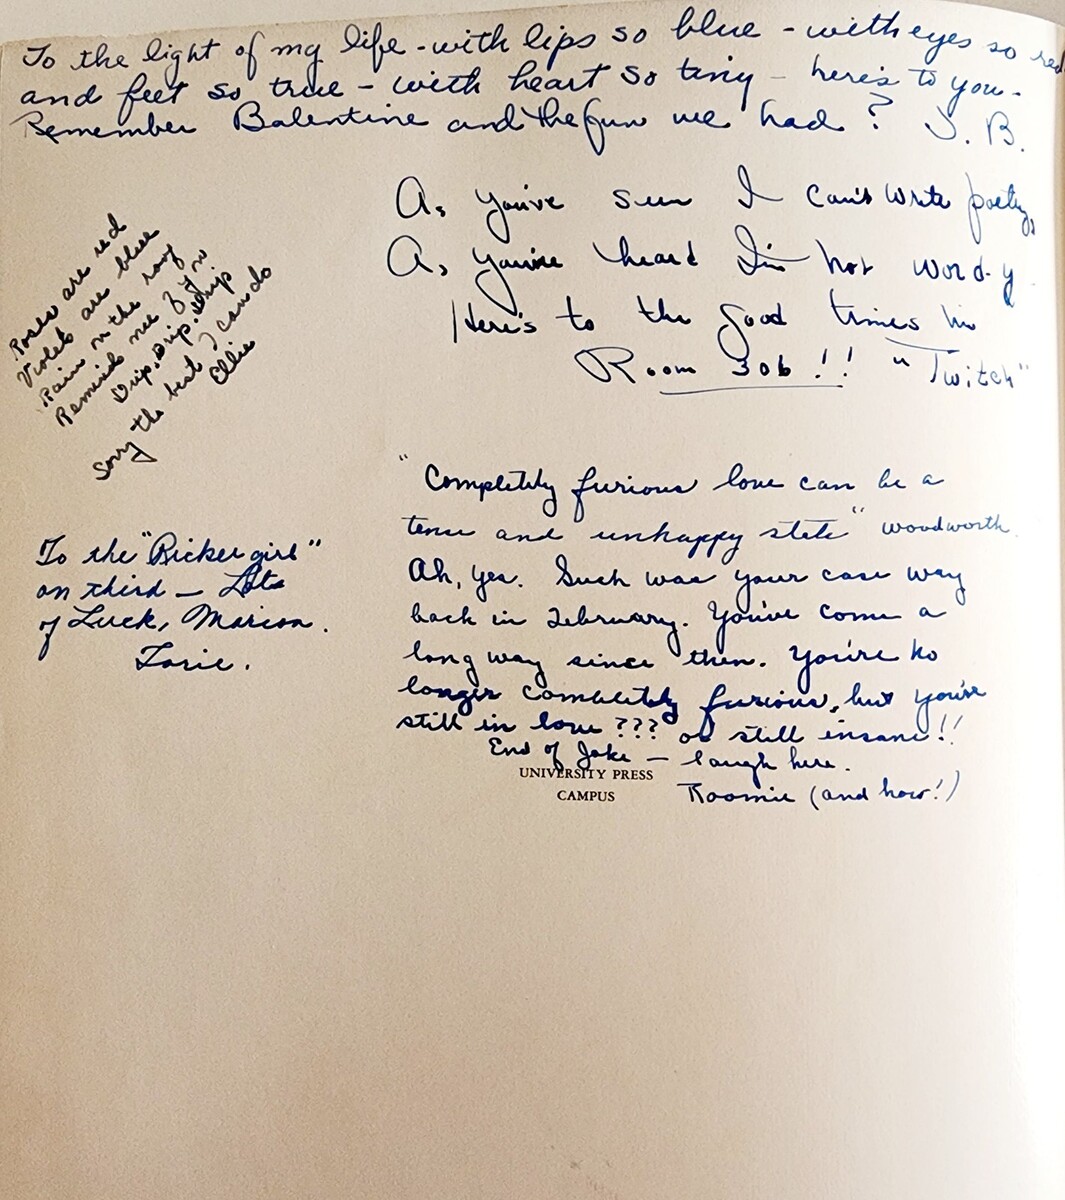 To the light of my life - with lips so blue - with eyes so red
and feet so true - with heart so tiny - here's to you -
Remember Balentine and the fun we had? J. B.
As you've seen I can't write poetry,
As you've heard I'm not word-y
Here's to the good times in
Room 306!! "Twitch"
Roses are red
Violets are blue
Rain on the roof
Reminds me of you
Drip, Drip, Drip
Sorry the best I can do
Ellie
"Completely furious love can be a
tense and unhappy state" Woodworth.
Ah, yes. Such was your case way
back in February. You've come a
long way since then. You're no
longer completely furious, but you're
still in love ??? or still insane!!
End of Joke - laugh here.
Roomie (and how!)
To the "Ricker girl"
on third - Lots
of Luck, Marion.
Lorie.
UNIVERSITY PRESS
CAMPUS